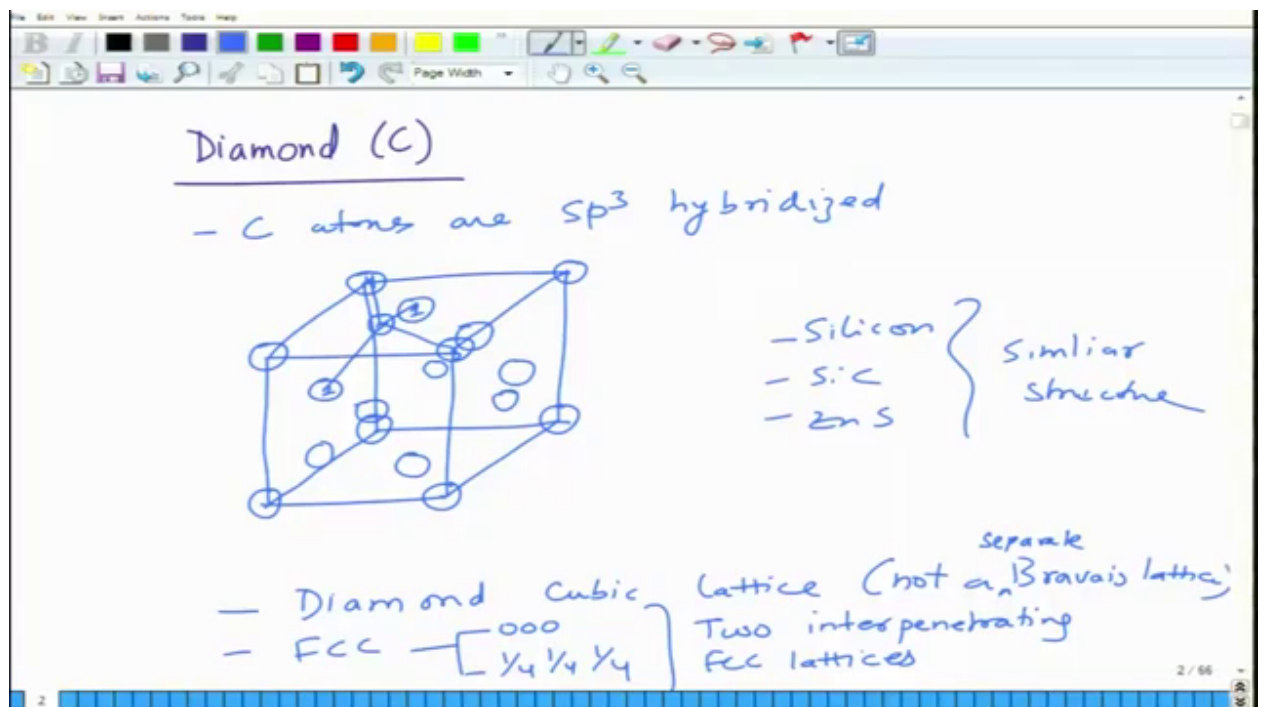 File Edit View Insert Actions Tools Help
B I Page Width
Diamond (C)
- C atoms are sp³ hybridized
1
1
- Silicon
- SiC
- ZnS
Simliar
structure
- Diamond Cubic Lattice (not a separate Bravais lattice)
- FCC 000
1/4 1/4 1/4
Two interpenetrating
FCC lattices
2 / 66
2